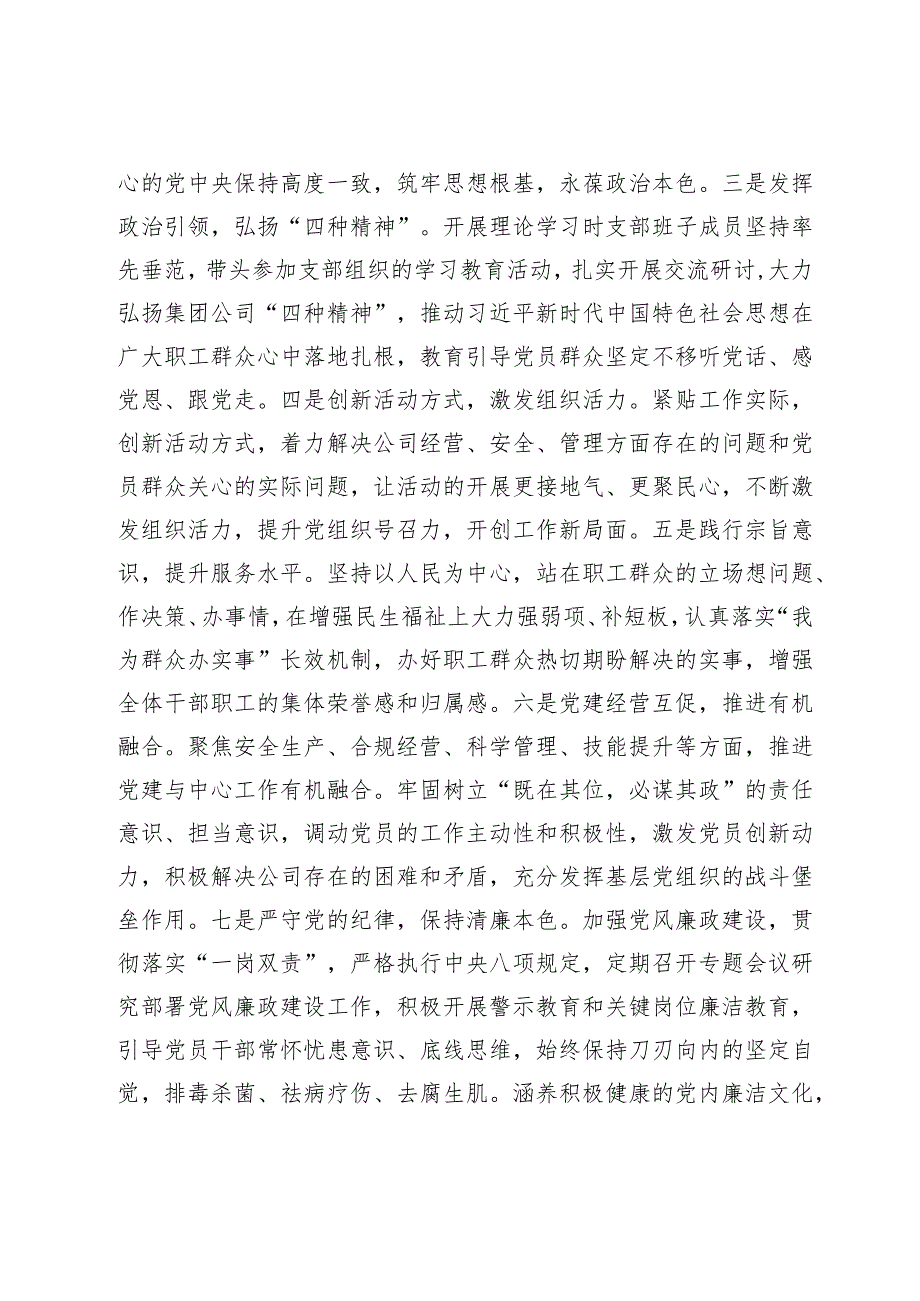 心的党中央保持高度一致，筑牢思想根基，永葆政治本色。三是发挥
政治引领，弘扬“四种精神”。开展理论学习时支部班子成员坚持率
先垂范，带头参加支部组织的学习教育活动，扎实开展交流研讨,大力
弘扬集团公司“四种精神”，推动习近平新时代中国特色社会思想在
广大职工群众心中落地扎根，教育引导党员群众坚定不移听党话、感
党恩、跟党走。四是创新活动方式，激发组织活力。紧贴工作实际，
创新活动方式，着力解决公司经营、安全、管理方面存在的问题和党
员群众关心的实际问题，让活动的开展更接地气、更聚民心，不断激
发组织活力，提升党组织号召力，开创工作新局面。五是践行宗旨意
识，提升服务水平。坚持以人民为中心，站在职工群众的立场想问题、
作决策、办事情，在增强民生福祉上大力强弱项、补短板，认真落实“我
为群众办实事”长效机制，办好职工群众热切期盼解决的实事，增强
全体干部职工的集体荣誉感和归属感。六是党建经营互促，推进有机
融合。聚焦安全生产、合规经营、科学管理、技能提升等方面，推进
党建与中心工作有机融合。牢固树立“既在其位，必谋其政”的责任
意识、担当意识，调动党员的工作主动性和积极性，激发党员创新动
力，积极解决公司存在的困难和矛盾，充分发挥基层党组织的战斗堡
垒作用。七是严守党的纪律，保持清廉本色。加强党风廉政建设，贯
彻落实“一岗双责”，严格执行中央八项规定，定期召开专题会议研
究部署党风廉政建设工作，积极开展警示教育和关键岗位廉洁教育，
引导党员干部常怀忧患意识、底线思维，始终保持刀刃向内的坚定自
觉，排毒杀菌、祛病疗伤、去腐生肌。涵养积极健康的党内廉洁文化，